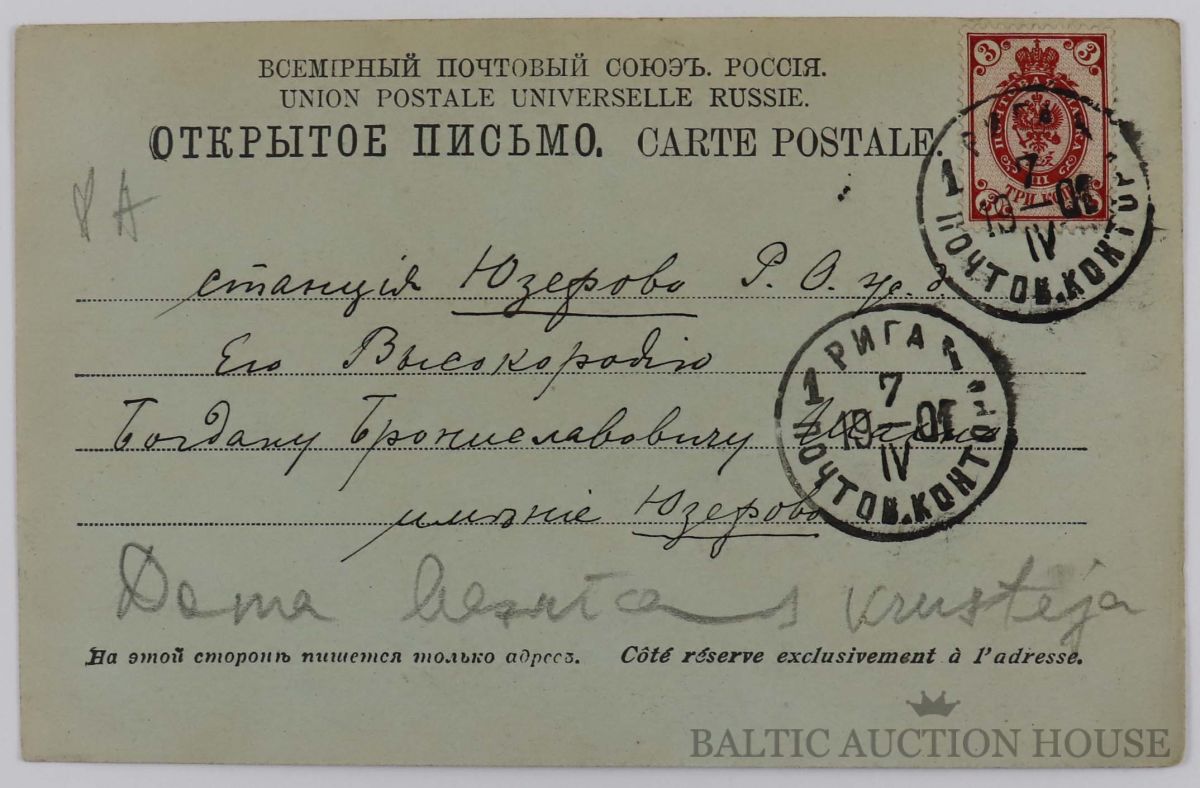 ВСЕМІРНЫЙ ПОЧТОВЫЙ СОЮЭЪ. РОССІЯ.
UNION POSTALE UNIVERSELLE RUSSIE.
ОТКРЫТОЕ ПИСЬМО. CARTE POSTALE.
3 3
ПОЧТОВАЯ МАРКА
III
ТРИ КОП.
РИГА 1
7
19—01
IV
1 ПОЧТОВ.КОНТОР.
станція Юзефово Р. О. ж. д.
Его Высокородію
РИГА 1
7
19—01
IV
1 ПОЧТОВ.КОНТОР.
Богдану Брониславовичу
имѣніе Юзефово
krusteja
На этой сторонѣ пишется только адресъ. Côté réserve exclusivement à l'adresse.
BALTIC AUCTION HOUSE